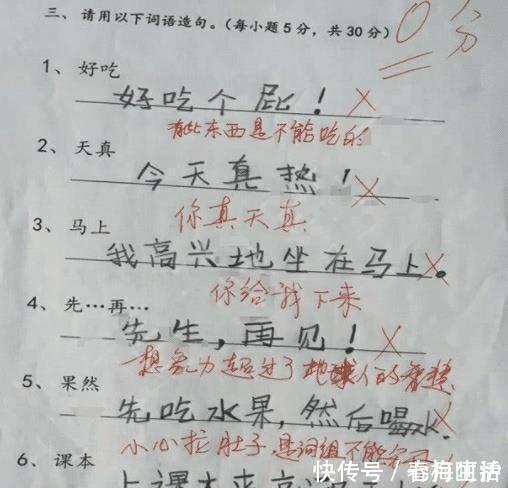 三、请用以下词语造句。(每小题5分，共30分)
0分
1、好吃
好吃个屁！
有些东西是不能吃的
2、天真
今天真热！
你真天真
3、马上
我高兴地坐在马上。
你给我下来
4、先…再…
先生，再见！
想象力超过了地球人的智慧
5、果然
先吃水果，然后喝水
小心拉肚子，是词组不能分开！
6、课本
上课本来
快传号／春梅